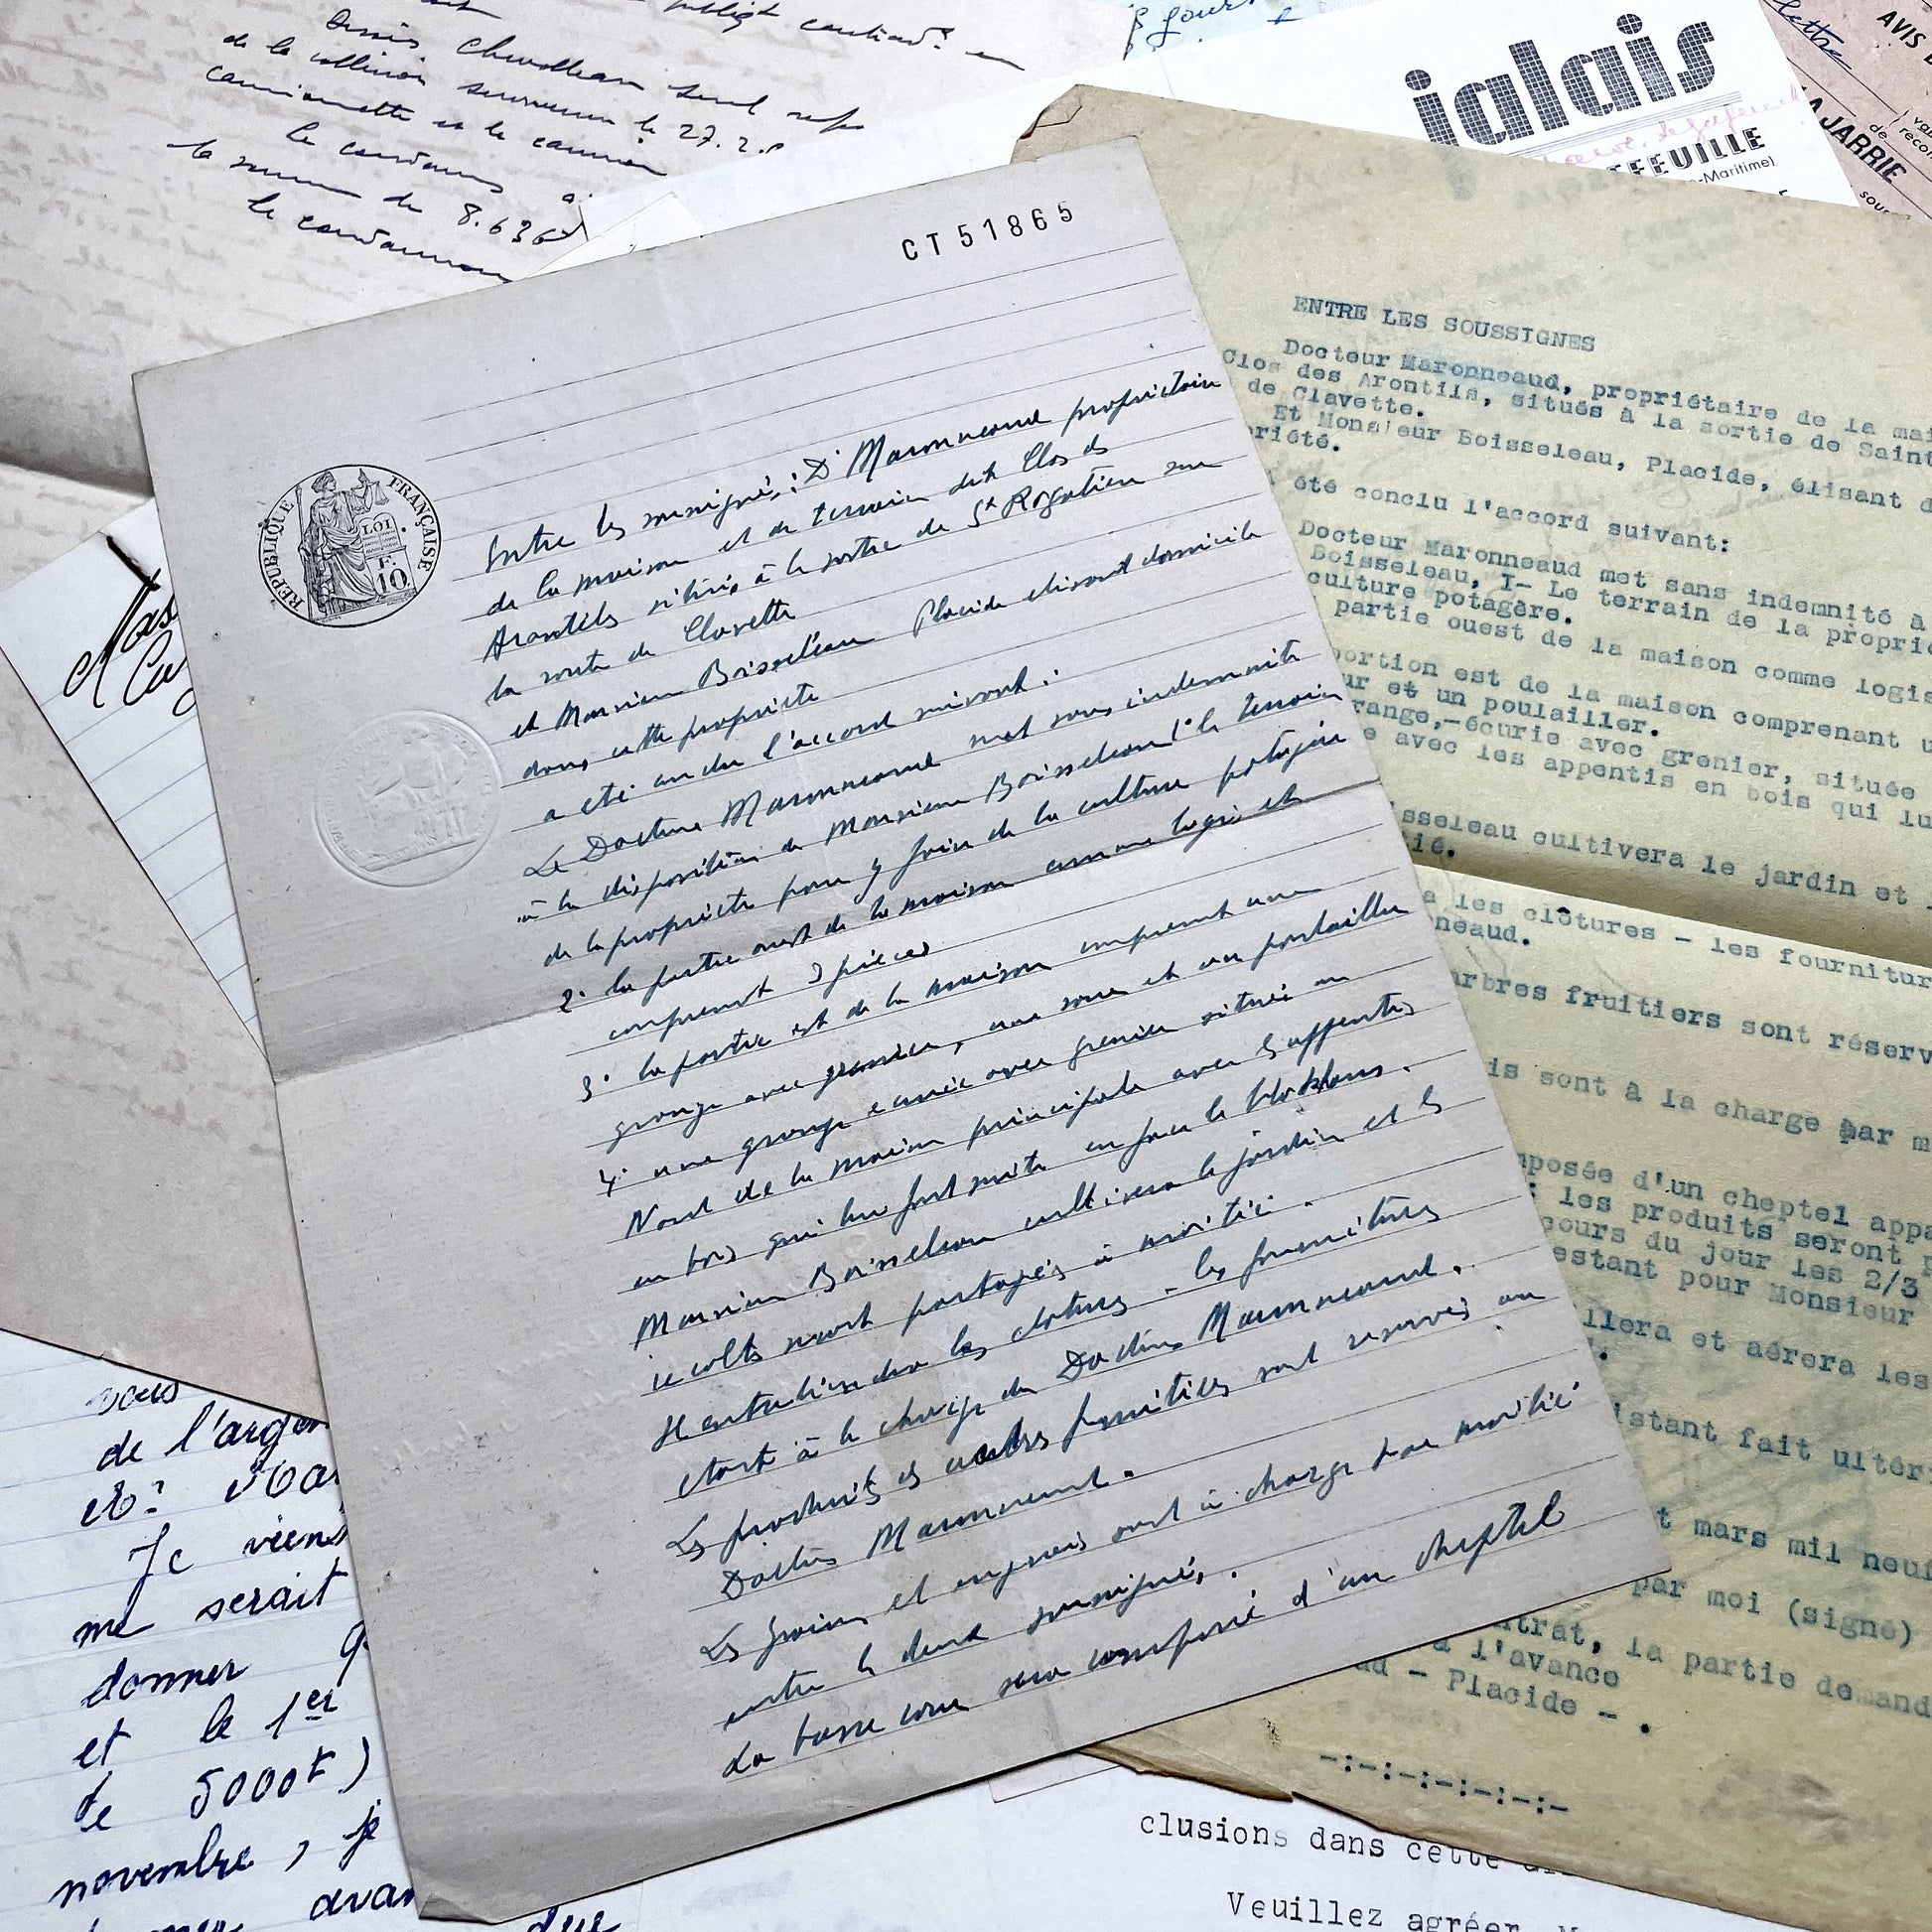 Denis Chevallereau seul
de la collision survenue le 27.2.
camionnette et le camion
Le condamne à
la somme de 8.636
le condamner
jours
jalais
FEUILLE
-Maritime)
lettre
AVIS
JARRIE
de
sous
CT51865
RÉPUBLIQUE FRANÇAISE
LOI
F.
10
Entre les soussignés: Dr Maronneaud propriétaire
de la maison et du terrain dits Clos des
Arontils situés à la sortie de St Rogatien sur
la route de Clavette
et Monsieur Boisseleau Placide elisant domicile
dans cette propriete
a été conclu l'accord suivant:
Le Docteur Maronneaud met sans indemnité
à la disposition de Monsieur Boisseleau 1° le terrain
de la propriete pour y faire de la culture potagère
2° la partie ouest de la maison comme logis et
comprenant 3 pièces
3° la partie est de la maison comprenant une
grange avec grenier, une cour et un poulailler
4° une grange écurie avec grenier située au
Nord de la maison principale avec les appentis
en bois qui lui font suite en face le blockhaus.
Monsieur Boisseleau cultivera le jardin et les
récoltes seront partagées à moitié.
Il entretiendra les clôtures - les fournitures
étant à la charge du Docteur Maronneaud.
Les produits des arbres fruitiers sont reservés au
Docteur Maronneaud.
Les grains et engrais sont à charge par moitié
entre les deux soussignés.
La basse cour sera composée d'un cheptel
ENTRE LES SOUSSIGNES
Docteur Maronneaud, propriétaire de la mai
Clos des Arontils, situés à la sortie de Saint
de Clavette.
Et Monsieur Boisseleau, Placide, élisant d
riété.
été conclu l'accord suivant:
Docteur Maronneaud met sans indemnité à
Boisseleau, I- Le terrain de la proprié
culture potagère.
partie ouest de la maison comme logis
portion est de la maison comprenant u
ur et un poulailler.
range,-écurie avec grenier, située
e avec les appentis en bois qui lu
sseleau cultivera le jardin et l
ié.
a les clôtures - les fournitur
neaud.
arbres fruitiers sont réserv
is sont à la charge par m
mposée d'un cheptel appa
: les produits seront p
cours du jour les 2/3
estant pour Monsieur
llera et aérera les
istant fait ultér
t mars mil neuf
par moi (signé)
ntrat, la partie demand
à l'avance
ud - Placide - .
-:-:-:-:-:-:-
vous
de l'argen
Je viens
me serait
donner q
et le 1er
de 5000F)
novembre, je
avan
due
clusions dans cette
Veuillez agréer,